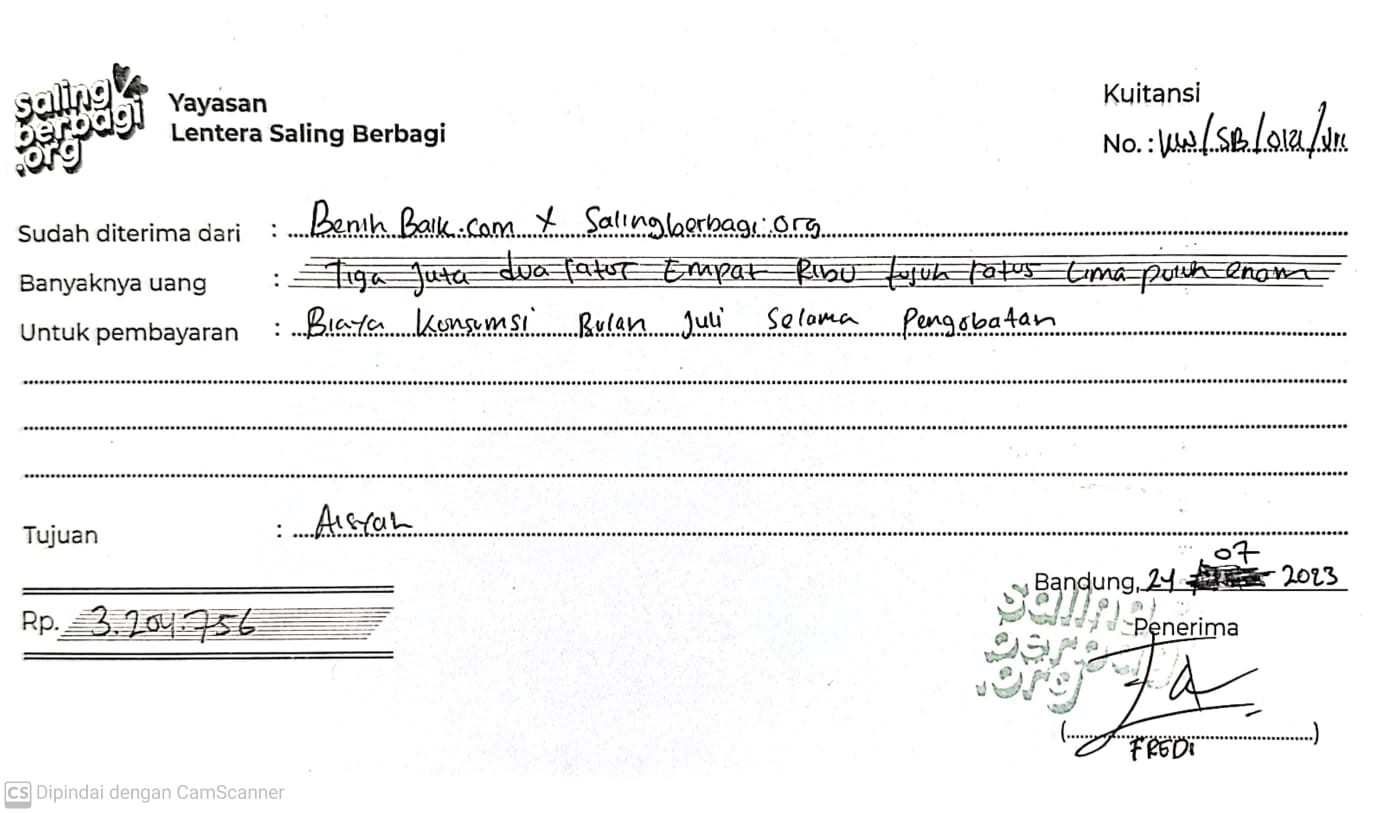 saling
berbagi
.org
Yayasan
Lentera Saling Berbagi
Kuitansi
No. : KW/SB/0121/VII
Sudah diterima dari : Benih Baik.com X Salingberbagi.org
Banyaknya uang : Tiga Juta dua ratus Empat Ribu tujuh ratus Lima puluh enam
Untuk pembayaran : Biaya Konsumsi Bulan Juli Selama Pengobatan
Tujuan : Aisyah
07
Bandung, 24 2023
Rp. 3.204.756
saling
berbagi
.org
Penerima
FREDI
CS Dipindai dengan CamScanner